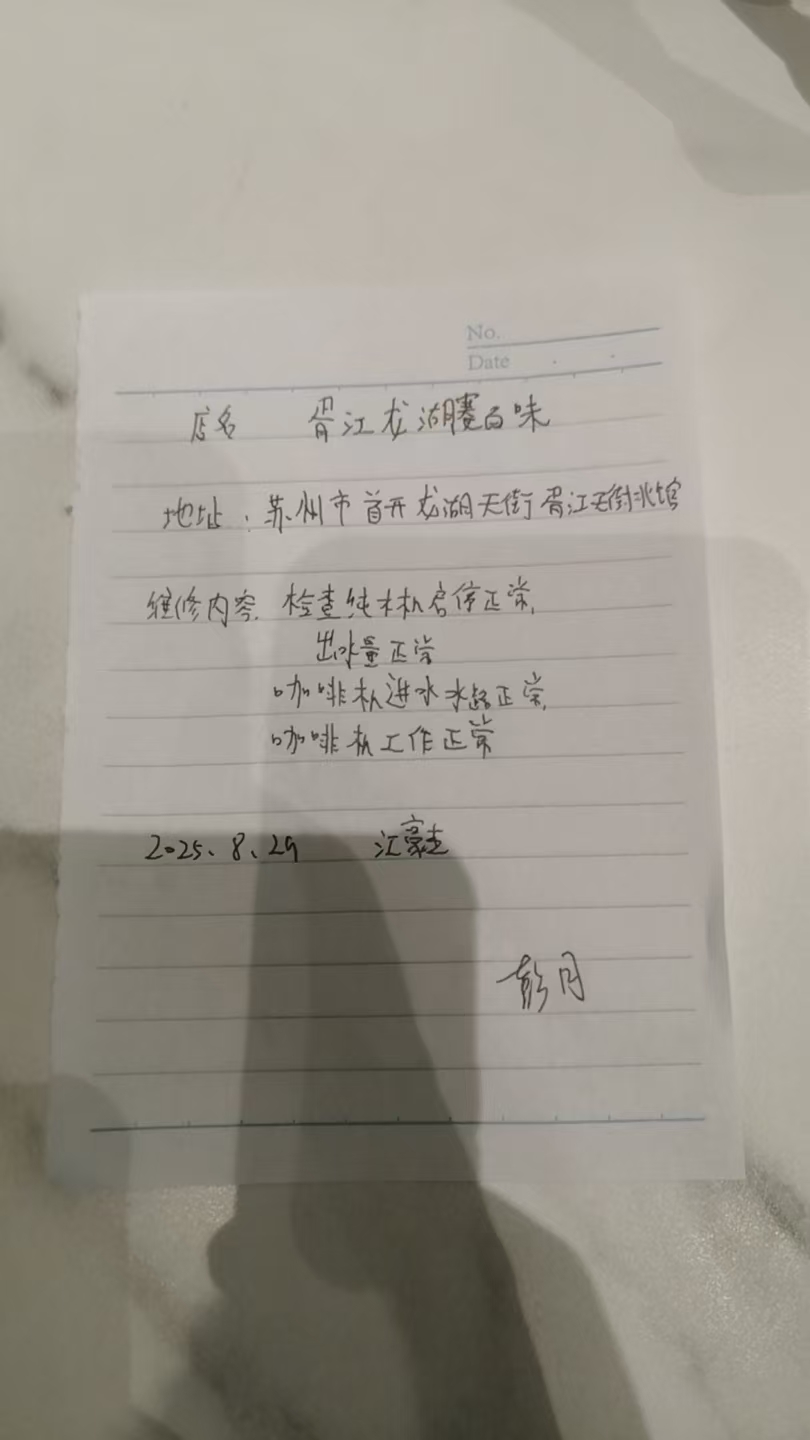 No.
Date
店名 胥江龙湖赛百味
地址：苏州市首开龙湖天街胥江天街北馆
维修内容. 检查纯水机启停正常,
出水量正常
咖啡机进水水路正常,
咖啡机工作正常
2025、8、29 江豪志
彭月